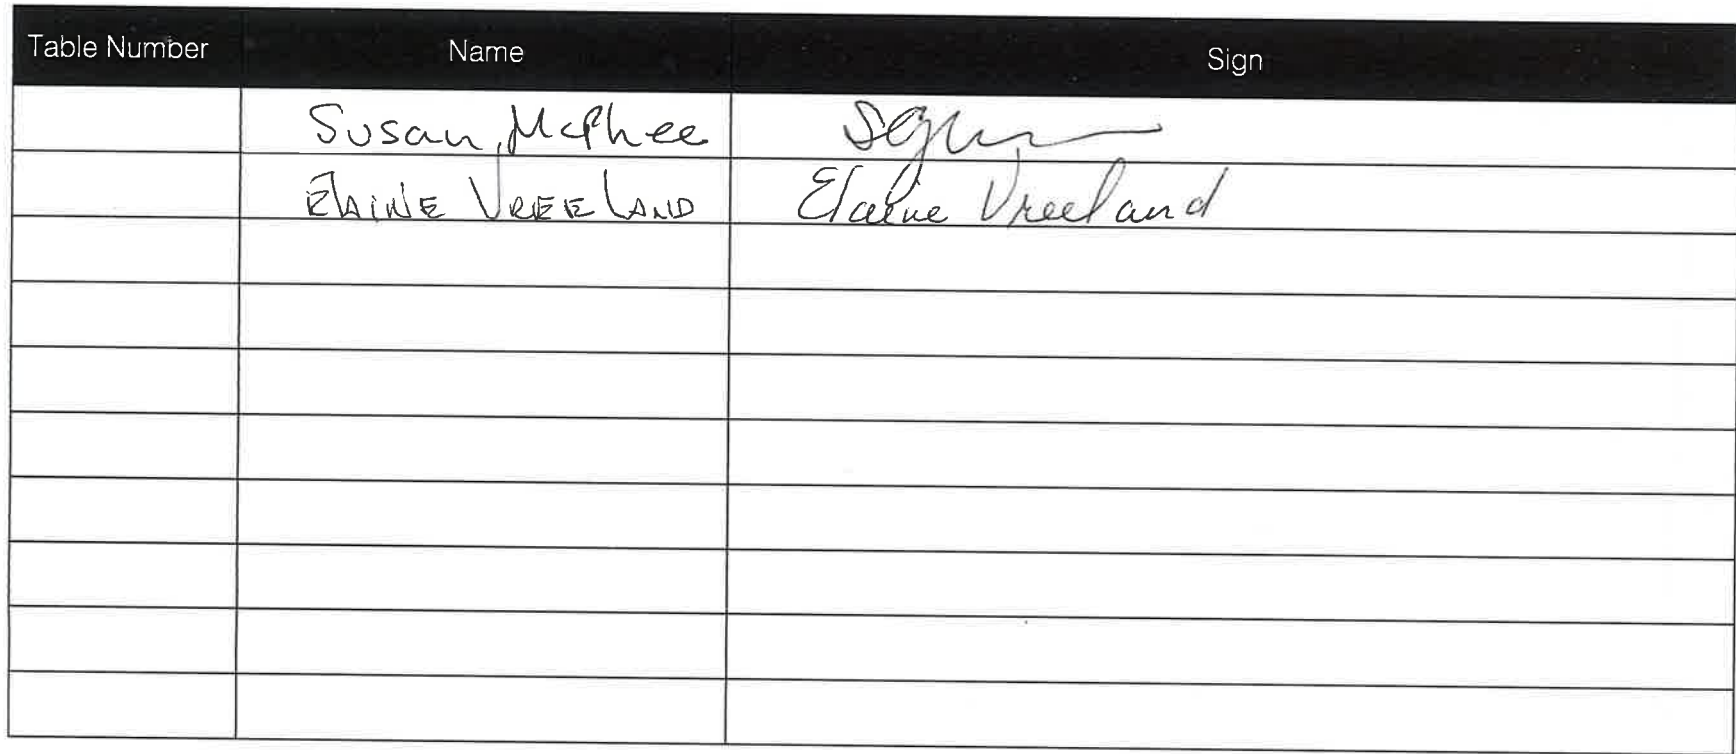 Table Number Name Sign
Susan McPhee
ELAINE VREELAND Elaine Vreeland